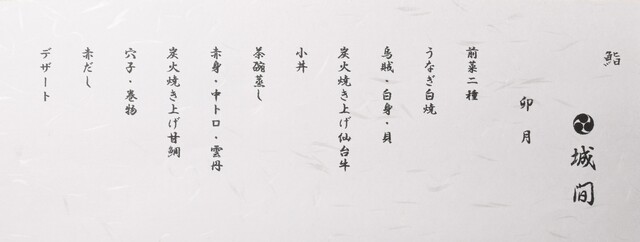 鮨
城間
卯月
前菜二種
うなぎ白焼
烏賊・白身・貝
炭火焼き上げ仙台牛
小丼
茶碗蒸し
赤身・中トロ・雲丹
炭火焼き上げ甘鯛
穴子・巻物
赤だし
デザート